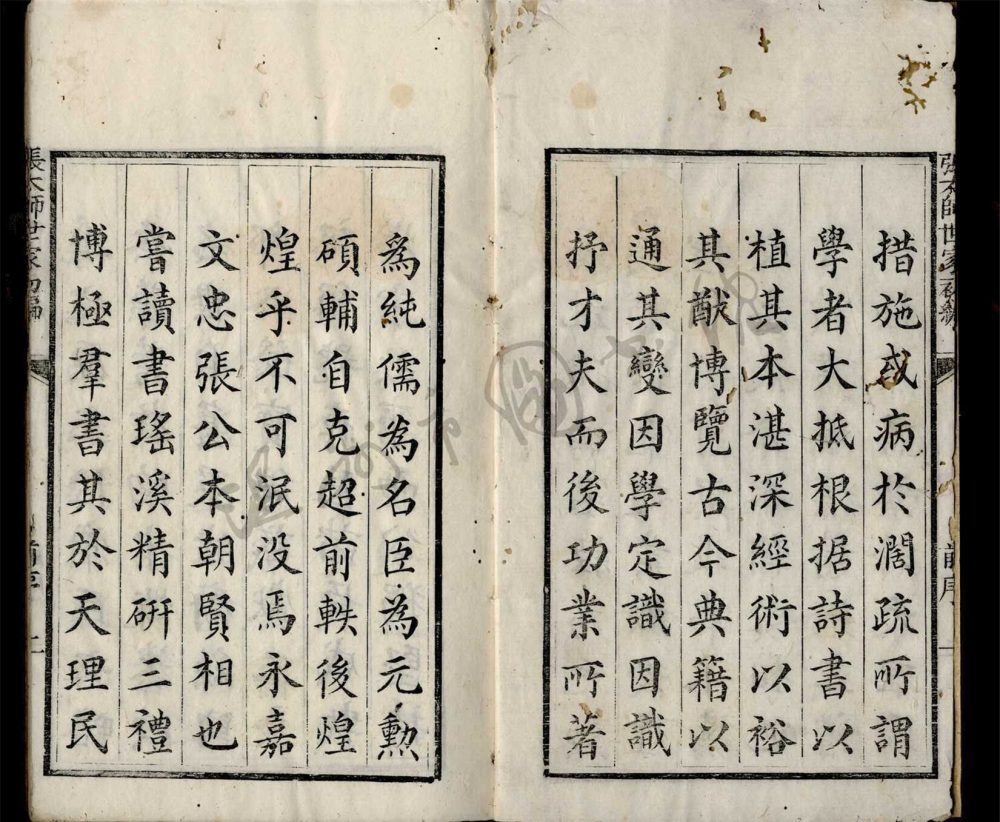 張太師世家初編
前序
一
措施或病於濶疏所謂
學者大抵根据詩書以
植其本湛深經術以裕
其猷博覽古今典籍以
通其變因學定識因識
抒才夫而後功業所著
為純儒為名臣為元勲
碩輔自克超前軼後煌
煌乎不可泯没焉永嘉
文忠張公本朝賢相也
嘗讀書瑤溪精研三禮
博極羣書其於天理民
張太師世家初編
前序